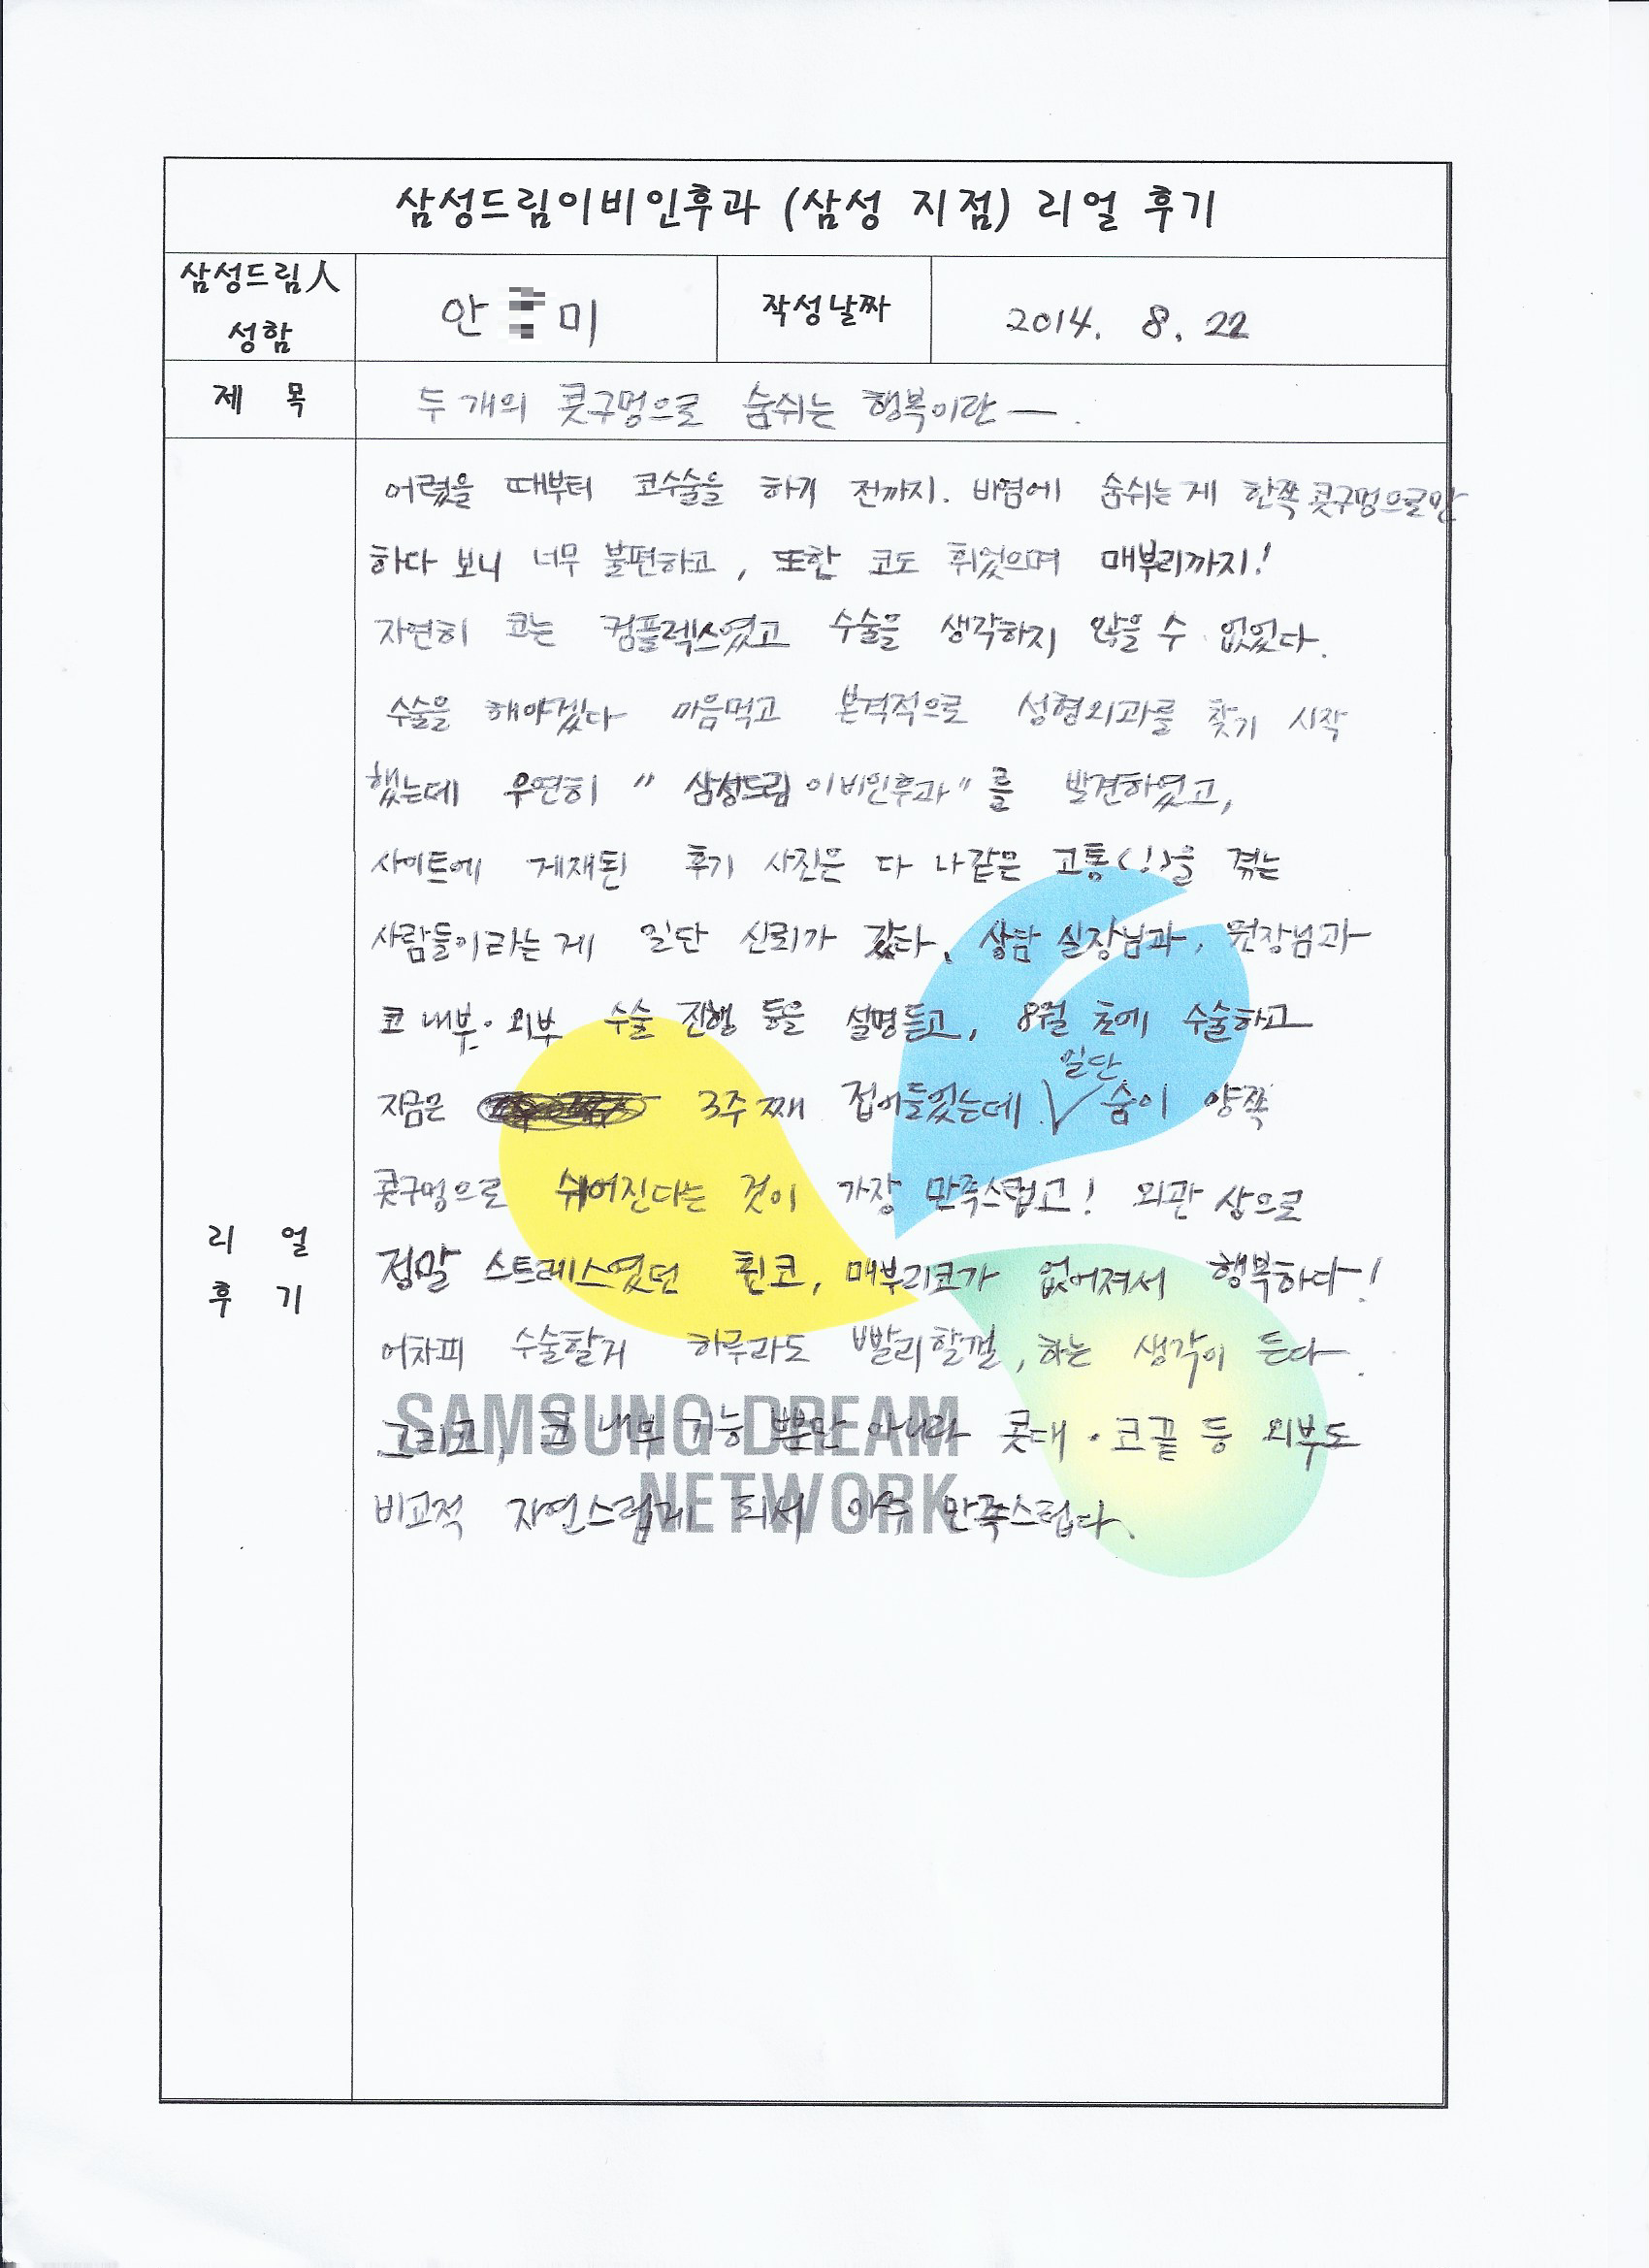 삼성드림이비인후과 (삼성 지점) 리얼 후기
삼성드림人
성함
안 미
작성날짜
2014. 8. 22
제 목
두 개의 콧구멍으로 숨쉬는 행복이란 — .
어렸을 때부터 코수술을 하기 전까지. 비염에 숨쉬는 게 한쪽 콧구멍으로만
하다 보니 너무 불편하고, 또한 코도 휘었으며 매부리까지!
자연히 코는 컴플렉스였고 수술을 생각하지 않을 수 없었다.
수술을 해야겠다 마음먹고 본격적으로 성형외과를 찾기 시작
했는데 우연히 "삼성드림이비인후과"를 발견하였고,
사이트에 게재된 후기 사진은 다 나같은 고통(!)을 겪는
사람들이라는 게 일단 신뢰가 갔다. 상담 실장님과, 원장님과
코 내부·외부 수술 진행 등을 설명듣고, 8월 초에 수술하고
일단
지금은 3주째 접어들었는데 √ 숨이 양쪽
콧구멍으로 쉬어진다는 것이 가장 만족스럽고! 외관 상으로
정말 스트레스였던 휜코, 매부리코가 없어져서 행복하다!
어차피 수술할거 하루라도 빨리할껄, 하는 생각이 든다.
그리고, 코 내부 기능 뿐만 아니라 콧대·코끝 등 외부도
비교적 자연스럽게 되서 아주 만족스럽다.
리 얼
후 기
SAMSUNG DREAM
NETWORK